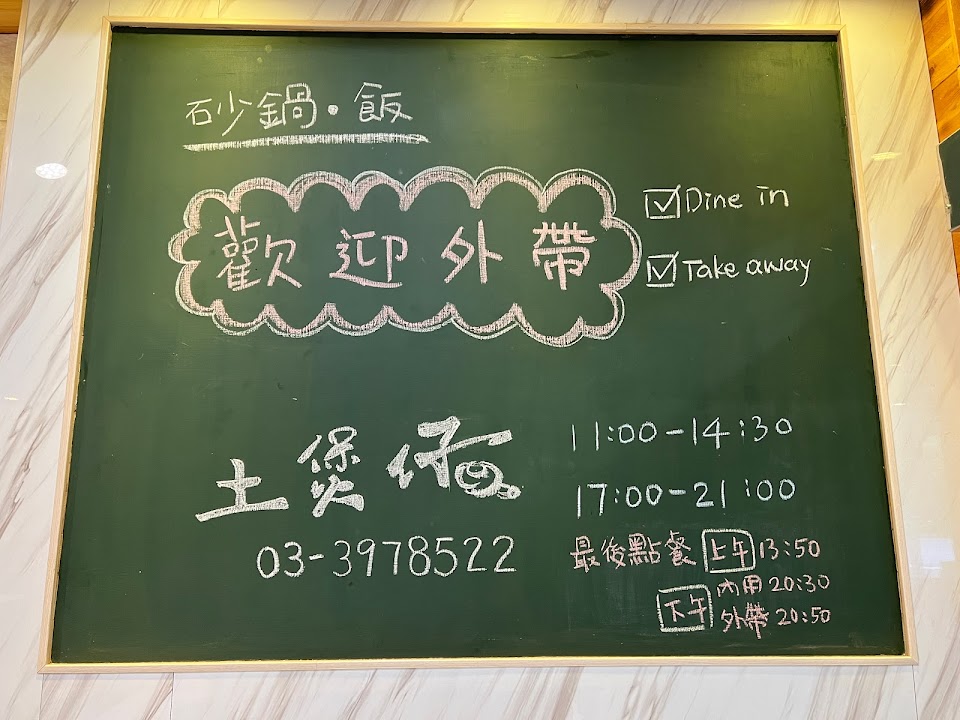 砂鍋·飯
歡迎外帶
☑Dine in
☑Take away
土煲仔
03-3978522
11:00-14:30
17:00-21:00
最後點餐 上午 13:50
下午 內用 20:30
外帶 20:50